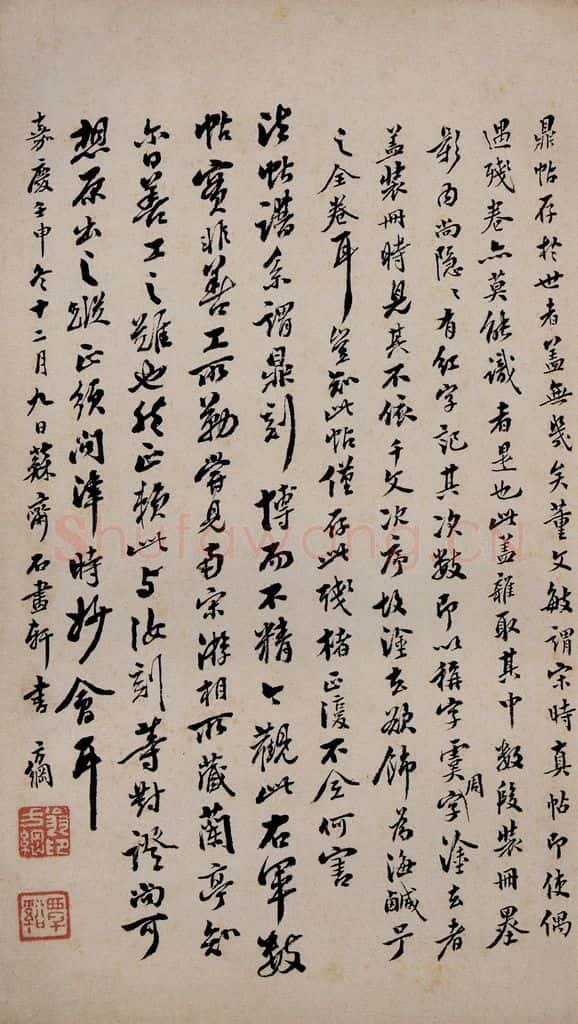 鼎帖存於世者蓋無幾矣董文敏謂宋時真帖即使偶
遇殘卷亦莫能識者是也此蓋雜取其中數段裝冊墨
影內尚隱〻有紅字記其次數即以稱字虞字塗去者
周
蓋裝冊時見其不依千文次序故塗去欲飾為海鹹
之全卷耳豈知此帖僅存此殘楮正復不全何害
法帖譜系謂鼎刻博而不精今觀此右軍數
帖實非善工所勒嘗見南宋游相所藏蘭亭知
尔日善工之難也然正賴此与汝刻等對證尚可
想原出之蹤正須問津時妙會耳
嘉慶壬申冬十二月九日蘇齋石畫軒書 方綱
翁方綱印
覃谿
Shufawang.cn